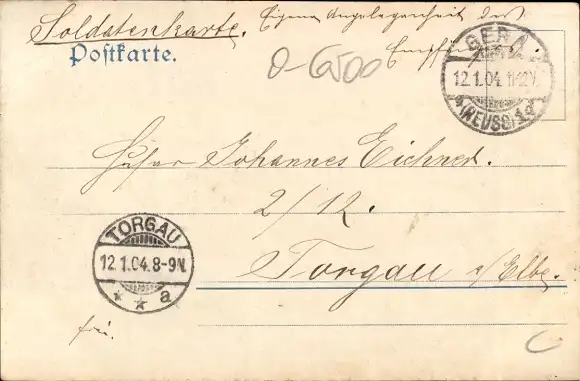 Soldatenkarte. Eigene Angelegenheit des
Postkarte. Empfängers.
0-6500
GERA
12.1.04.11-12V.
(REUSS)
Husar Johannes Eichner.
2/12.
Torgau a/Elbe.
TORGAU
12.1.04.8-9N.
* * a
frei.